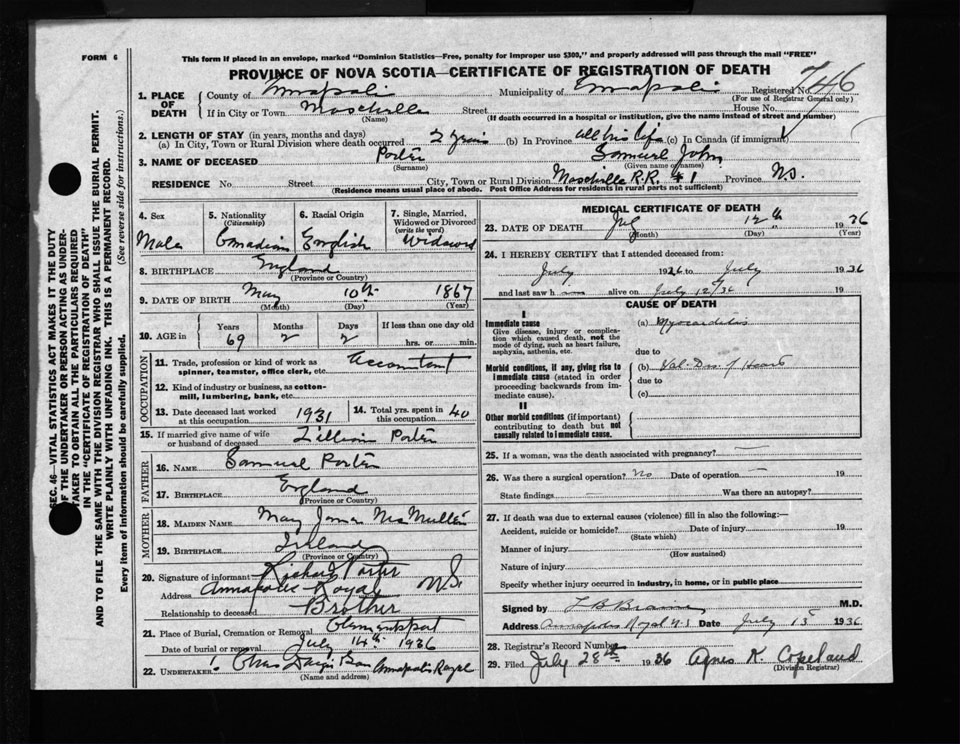 FORM 6
This form if placed in an envelope, marked "Dominion Statistics—Free, penalty for improper use $300," and properly addressed will pass through the mail "FREE"
PROVINCE OF NOVA SCOTIA—CERTIFICATE OF REGISTRATION OF DEATH
746
1. PLACE OF DEATH County of Annapolis Municipality of Annapolis Registered No.
(For use of Registrar General only)
If in City or Town Moschelle Street House No.
(Name) (If death occurred in a hospital or institution, give the name instead of street and number)
2. LENGTH OF STAY (in years, months and days)
(a) In City, Town or Rural Division where death occurred 2 years (b) In Province all his life (c) In Canada (if immigrant)
3. NAME OF DECEASED Porter Samuel John
(Surname) (Given name or names)
RESIDENCE No. Street City, Town or Rural Division Moschelle R.R. #1 Province N.S.
(Residence means usual place of abode. Post Office Address for residents in rural parts not sufficient)
4. Sex Male
5. Nationality (Citizenship) Canadian
6. Racial Origin English
7. Single, Married, Widowed or Divorced (write the word) Widowed
8. BIRTHPLACE England
(Province or Country)
9. DATE OF BIRTH May 10th 1867
(Month) (Day) (Year)
10. AGE in Years Months Days If less than one day old
69 2 2 hrs. or min.
OCCUPATION
11. Trade, profession or kind of work as spinner, teamster, office clerk, etc. Accountant
12. Kind of industry or business, as cotton-mill, lumbering, bank, etc.
13. Date deceased last worked at this occupation 1931
14. Total yrs. spent in this occupation 40
15. If married give name of wife or husband of deceased Lillian Porter
FATHER
16. NAME Samuel Porter
17. BIRTHPLACE England
(Province or Country)
MOTHER
18. MAIDEN NAME May McMullen
19. BIRTHPLACE Ireland
(Province or Country)
20. Signature of informant Richard Porter
Address Annapolis Royal N.S.
Relationship to deceased Brother
21. Place of Burial, Cremation or Removal Clementsport
Date of burial or removal July 14th 1936
22. UNDERTAKER Chas Annapolis Royal
(Name and address)
MEDICAL CERTIFICATE OF DEATH
23. DATE OF DEATH July 12th 1936
(Month) (Day) (Year)
24. I HEREBY CERTIFY that I attended deceased from:
July 1936 to July 1936
and last saw h alive on July 12/36 19
CAUSE OF DEATH
I
Immediate cause
Give disease, injury or complication which caused death, not the mode of dying, such as heart failure, asphyxia, asthenia, etc.
(a) Myocarditis
due to
Morbid conditions, if any, giving rise to immediate cause (stated in order proceeding backwards from immediate cause).
(b) Val. Dis. of Heart
due to
(c)
II
Other morbid conditions (if important) contributing to death but not causally related to immediate cause.
25. If a woman, was the death associated with pregnancy? —
26. Was there a surgical operation? No Date of operation — 19
State findings Was there an autopsy?
27. If death was due to external causes (violence) fill in also the following:—
Accident, suicide or homicide? Date of injury 19
(State which)
Manner of injury
(How sustained)
Nature of injury
Specify whether injury occurred in industry, in home, or in public place
Signed by M.D.
Address Annapolis Royal N.S. Date July 15 1936
28. Registrar's Record Number
29. Filed July 28th 1936 Agnes K. Copeland
(Division Registrar)
SEC. 46—VITAL STATISTICS ACT MAKES IT THE DUTY
OF THE UNDERTAKER OR PERSON ACTING AS UNDER-
TAKER TO OBTAIN ALL THE PARTICULARS REQUIRED
IN THE "CERTIFICATE OF REGISTRATION OF DEATH"
AND TO FILE THE SAME WITH THE DIVISION REGISTRAR WHO SHALL ISSUE THE BURIAL PERMIT.
WRITE PLAINLY WITH UNFADING INK. THIS IS A PERMANENT RECORD.
Every item of information should be carefully supplied. (See reverse side for instructions.)